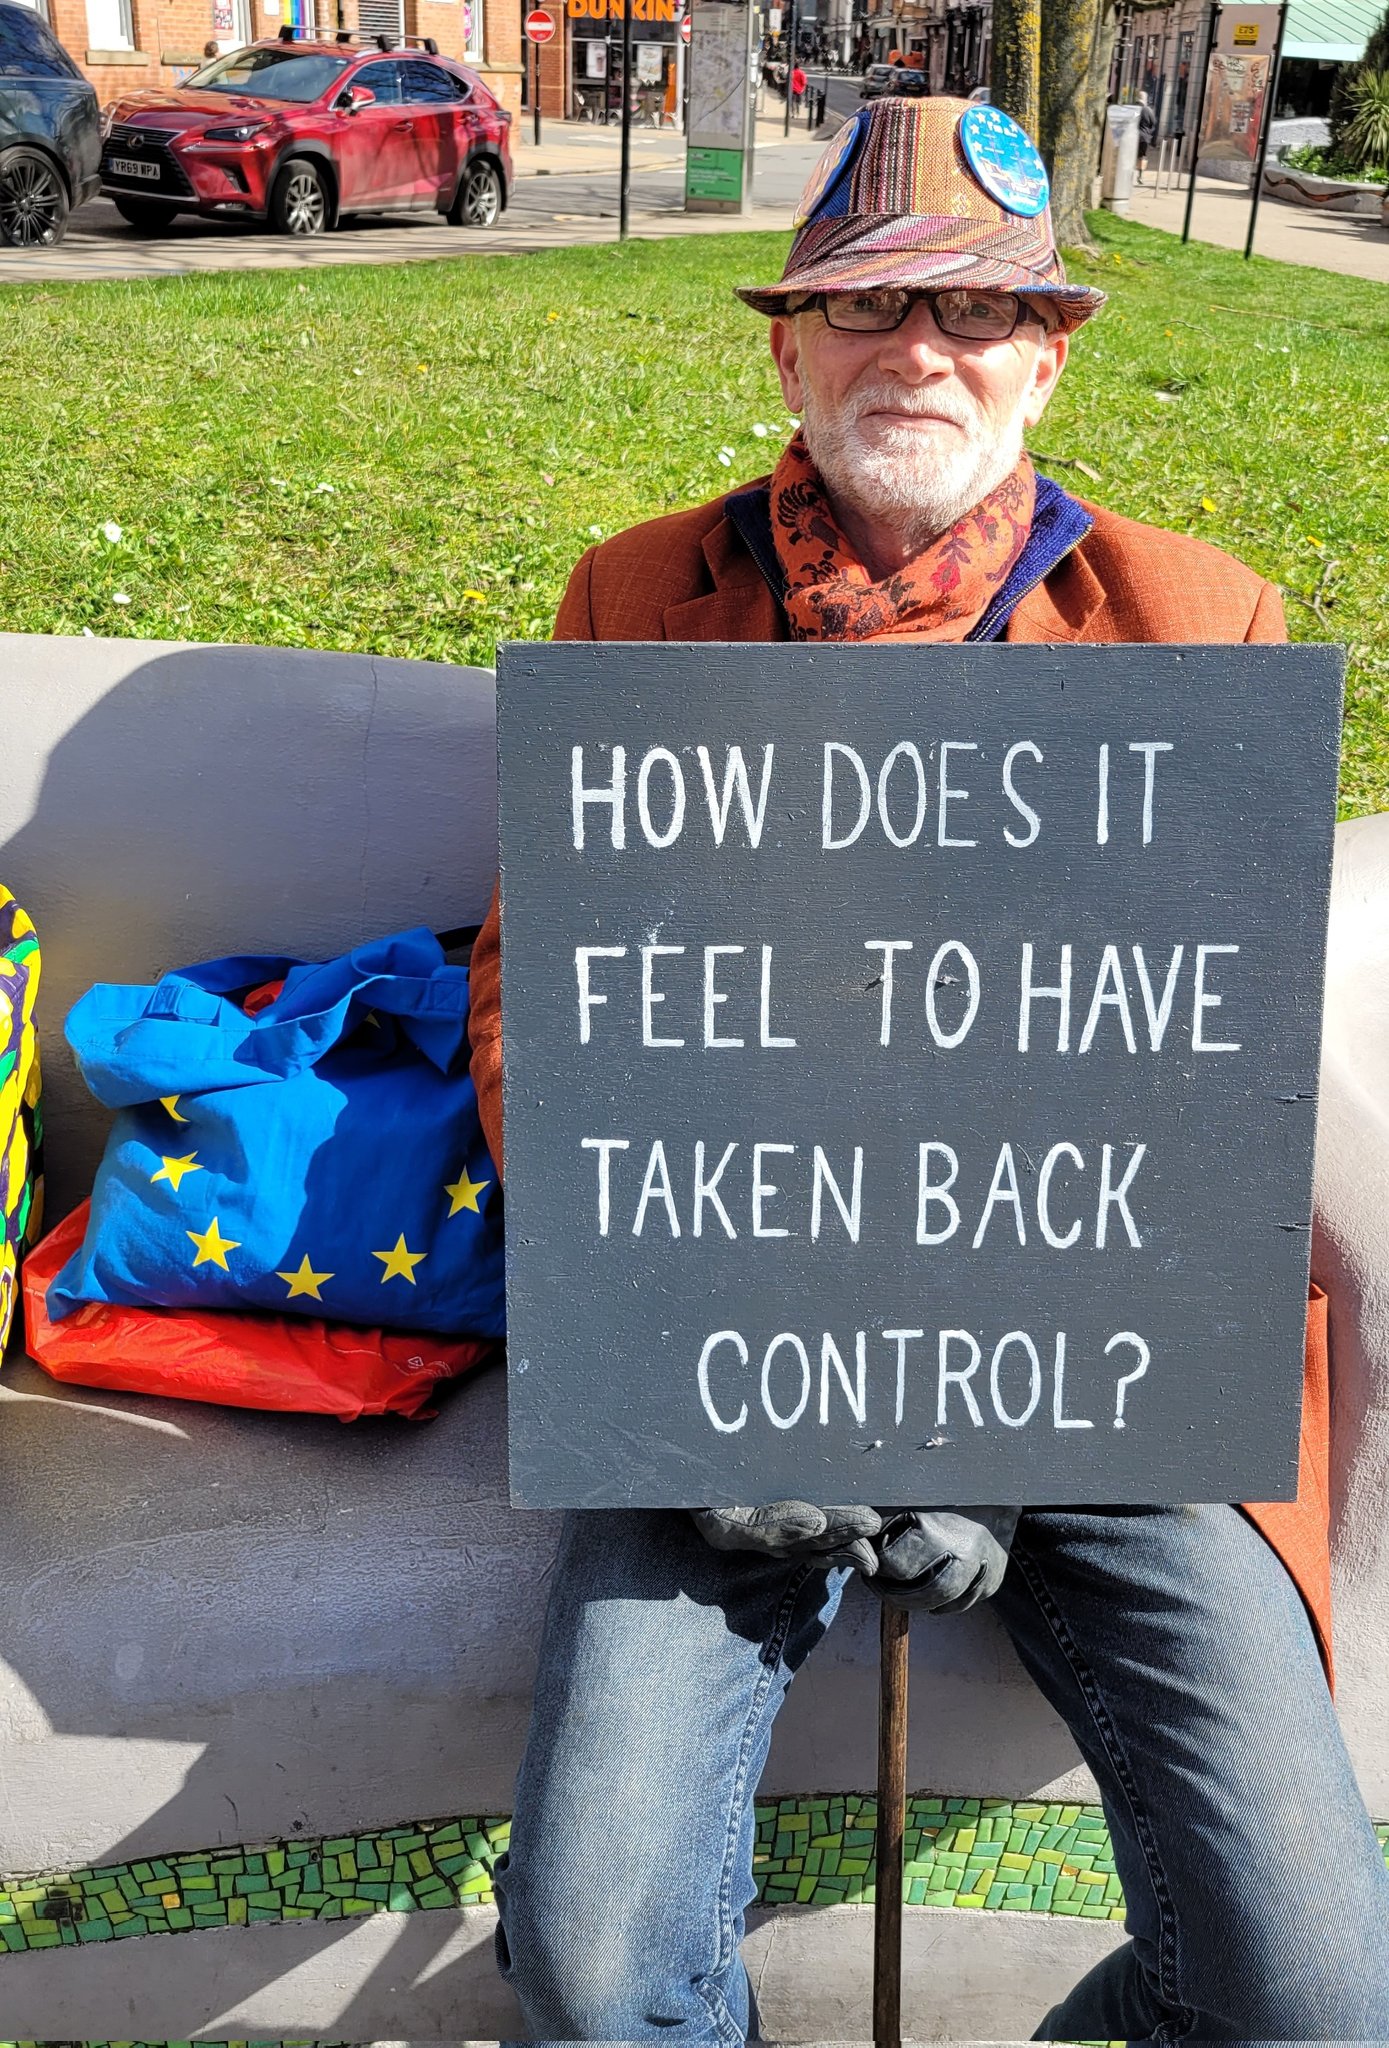 DUNKIN
YR69 WPA
£75
HOW DOES IT
FEEL TO HAVE
TAKEN BACK
CONTROL?